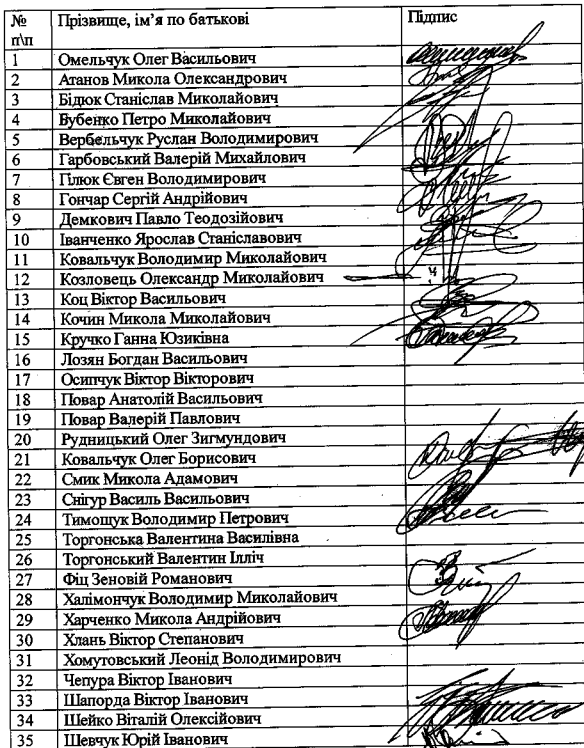 № Прізвище, ім’я по батькові Підпис
п\п
1 Омельчук Олег Васильович
2 Атанов Микола Олександрович
3 Бідюк Станіслав Миколайович
4 Бубенко Петро Миколайович
5 Вербельчук Руслан Володимирович
6 Гарбовський Валерій Михайлович
7 Гілюк Євген Володимирович
8 Гончар Сергій Андрійович
9 Демкович Павло Теодозійович
10 Іванченко Ярослав Станіславович
11 Ковальчук Володимир Миколайович
12 Козловець Олександр Миколайович
13 Коц Віктор Васильович
14 Кочин Микола Миколайович
15 Кручко Ганна Юзиківна
16 Лозян Богдан Васильович
17 Осипчук Віктор Вікторович
18 Повар Анатолій Васильович
19 Повар Валерій Павлович
20 Рудницький Олег Зигмундович
21 Ковальчук Олег Борисович
22 Смик Микола Адамович
23 Снігур Василь Васильович
24 Тимощук Володимир Петрович
25 Торгонська Валентина Василівна
26 Торгонський Валентин Ілліч
27 Фіц Зеновій Романович
28 Халімончук Володимир Миколайович
29 Харченко Микола Андрійович
30 Хлань Віктор Степанович
31 Хомутовський Леонід Володимирович
32 Чепура Віктор Іванович
33 Шапорда Віктор Іванович
34 Шейко Віталій Олексійович
35 Шевчук Юрій Іванович